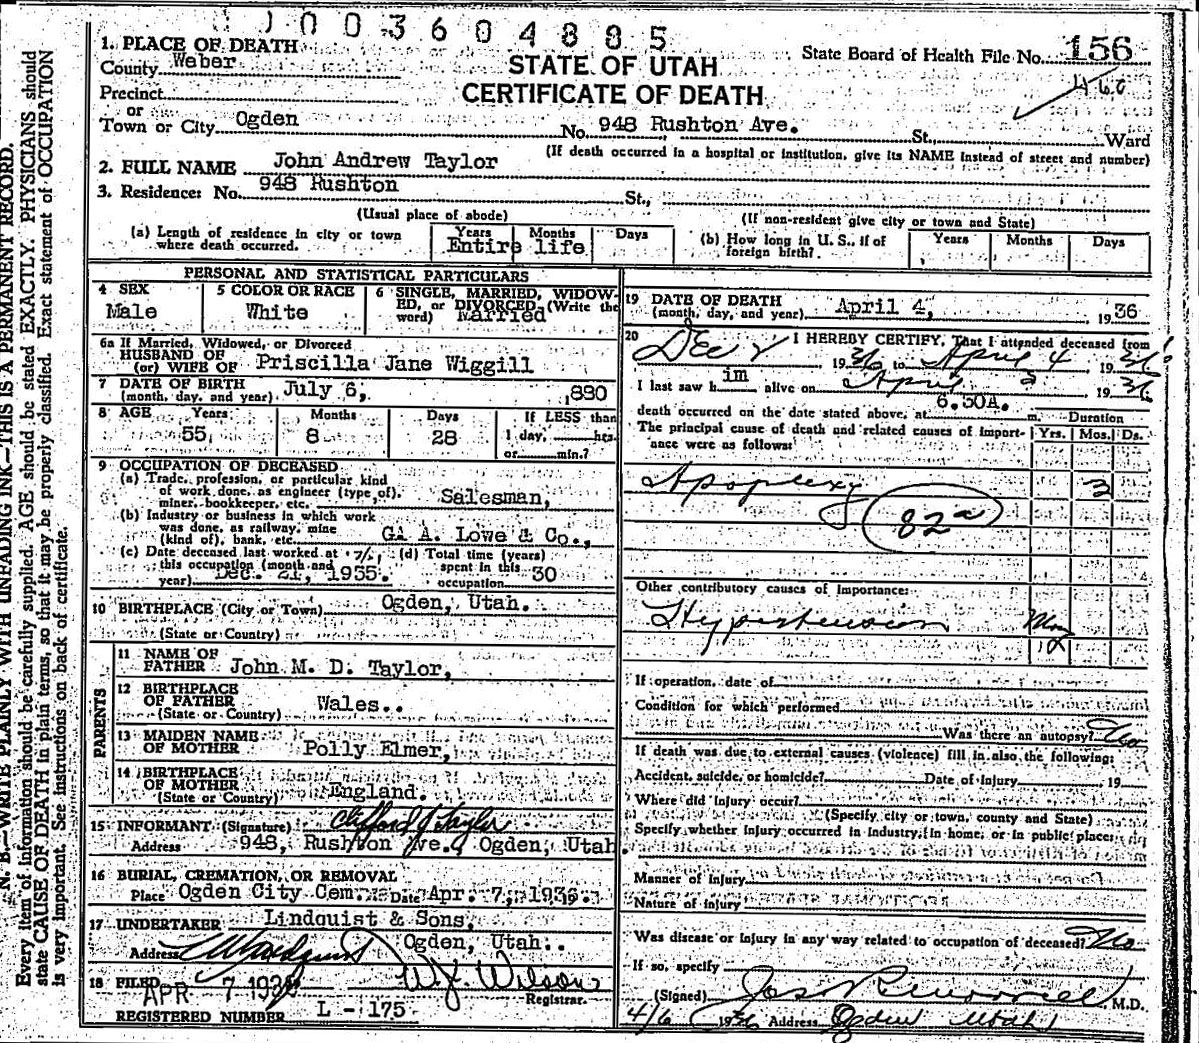 003604885
1. PLACE OF DEATH
County Weber
STATE OF UTAH
CERTIFICATE OF DEATH
State Board of Health File No. 156
460
Precinct
or
Town or City Ogden No. 948 Rushton Ave. St., Ward
(If death occurred in a hospital or institution, give its NAME instead of street and number)
2. FULL NAME John Andrew Taylor
3. Residence: No. 948 Rushton St.,
(Usual place of abode) (If non-resident give city or town and State)
(a) Length of residence in city or town where death occurred. Years Months Days
Entire life
(b) How long in U. S., if of foreign birth? Years Months Days
PERSONAL AND STATISTICAL PARTICULARS
4 SEX
Male
5 COLOR OR RACE
White
6 SINGLE, MARRIED, WIDOW-
ED, or DIVORCED (Write the
word) Married
6a If Married, Widowed, or Divorced
HUSBAND OF
(or) WIFE OF Priscilla Jane Wiggill
7 DATE OF BIRTH
(month, day, and year) July 6, 1880
8 AGE Years Months Days If LESS than
55 8 28 1 day, hrs.
or min.?
9 OCCUPATION OF DECEASED
(a) Trade, profession, or particular kind
of work done, as engineer (type of),
miner, bookkeeper, etc. Salesman,
(b) Industry or business in which work
was done, as railway, mine
(kind of), bank, etc. GA A. Lowe & Co.,
(c) Date deceased last worked at
this occupation (month and
year) Dec. 21, 1935.
(d) Total time (years)
spent in this
occupation 30
10 BIRTHPLACE (City or Town) Ogden, Utah.
(State or Country)
PARENTS
11 NAME OF
FATHER John M. D. Taylor,
12 BIRTHPLACE
OF FATHER Wales..
(State or Country)
13 MAIDEN NAME
OF MOTHER Polly Elmer,
14 BIRTHPLACE
OF MOTHER
(State or Country) England.
15 INFORMANT (Signature) Clifford J Taylor
Address 948, Rushton Ave., Ogden, Utah.
16 BURIAL, CREMATION, OR REMOVAL
Place Ogden City Cem. Date Apr. 7, 1936.
17 UNDERTAKER Lindquist & Sons,
Address Ogden, Utah.
18 FILED APR 7 1936 W. J. Wilson
Registrar.
REGISTERED NUMBER L - 175
19 DATE OF DEATH
(month, day, and year) April 4, 1936
20 I HEREBY CERTIFY, That I attended deceased from
1936 to April 4 1936
I last saw him alive on April 3 1936
death occurred on the date stated above, at 6.30A. m. Duration
The principal cause of death and related causes of import-
ance were as follows: Yrs. Mos. Ds.
Apoplexy 3
82a
Other contributory causes of importance:
Hypertension
If operation, date of
Condition for which performed
Was there an autopsy? No
If death was due to external causes (violence) fill in also the following:
Accident, suicide, or homicide? Date of injury 19
Where did injury occur?
(Specify city or town, county and State)
Specify whether injury occurred in industry, in home, or in public place:
Manner of Injury
Nature of Injury
Was disease or injury in any way related to occupation of deceased? No
If so, specify
(Signed) M.D.
4/6 1936 Address Ogden Utah
N. B.—WRITE PLAINLY WITH UNFADING INK—THIS IS A PERMANENT RECORD.
Every item of information should be carefully supplied. AGE should be stated EXACTLY. PHYSICIANS should
state CAUSE OF DEATH in plain terms, so that it may be properly classified. Exact statement of OCCUPATION
is very important. See instructions on back of certificate.